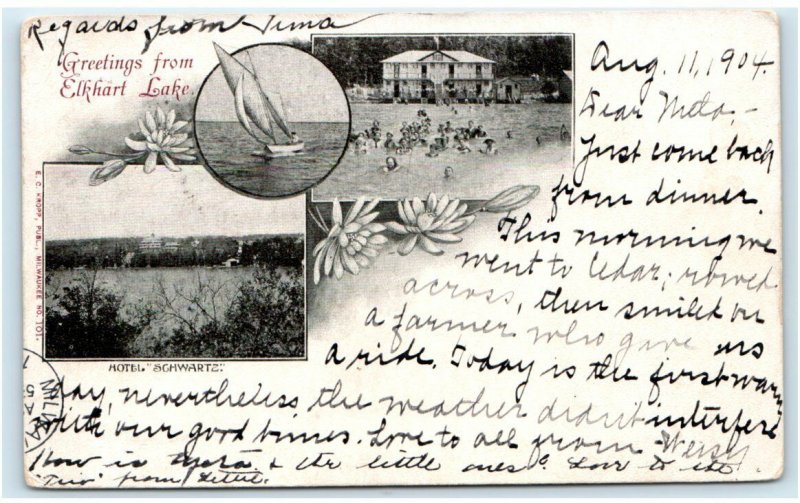 Regards from Tima
Greetings from
Elkhart Lake.
Aug. 11, 1904.
Dear Meta, -
Just come back
from dinner.
This morning we
went to Cedar; rowed
across, then smiled on
a farmer who give us
a ride. Today is the first warm
day, nevertheless the weather didn't interfere
with our good times. Love to all from
How is & the little ones? Love to the
"Trio" from
E. C. KROPP, PUBL., MILWAUKEE NO. 101.
HOTEL "SCHWARTZ."
MILWA